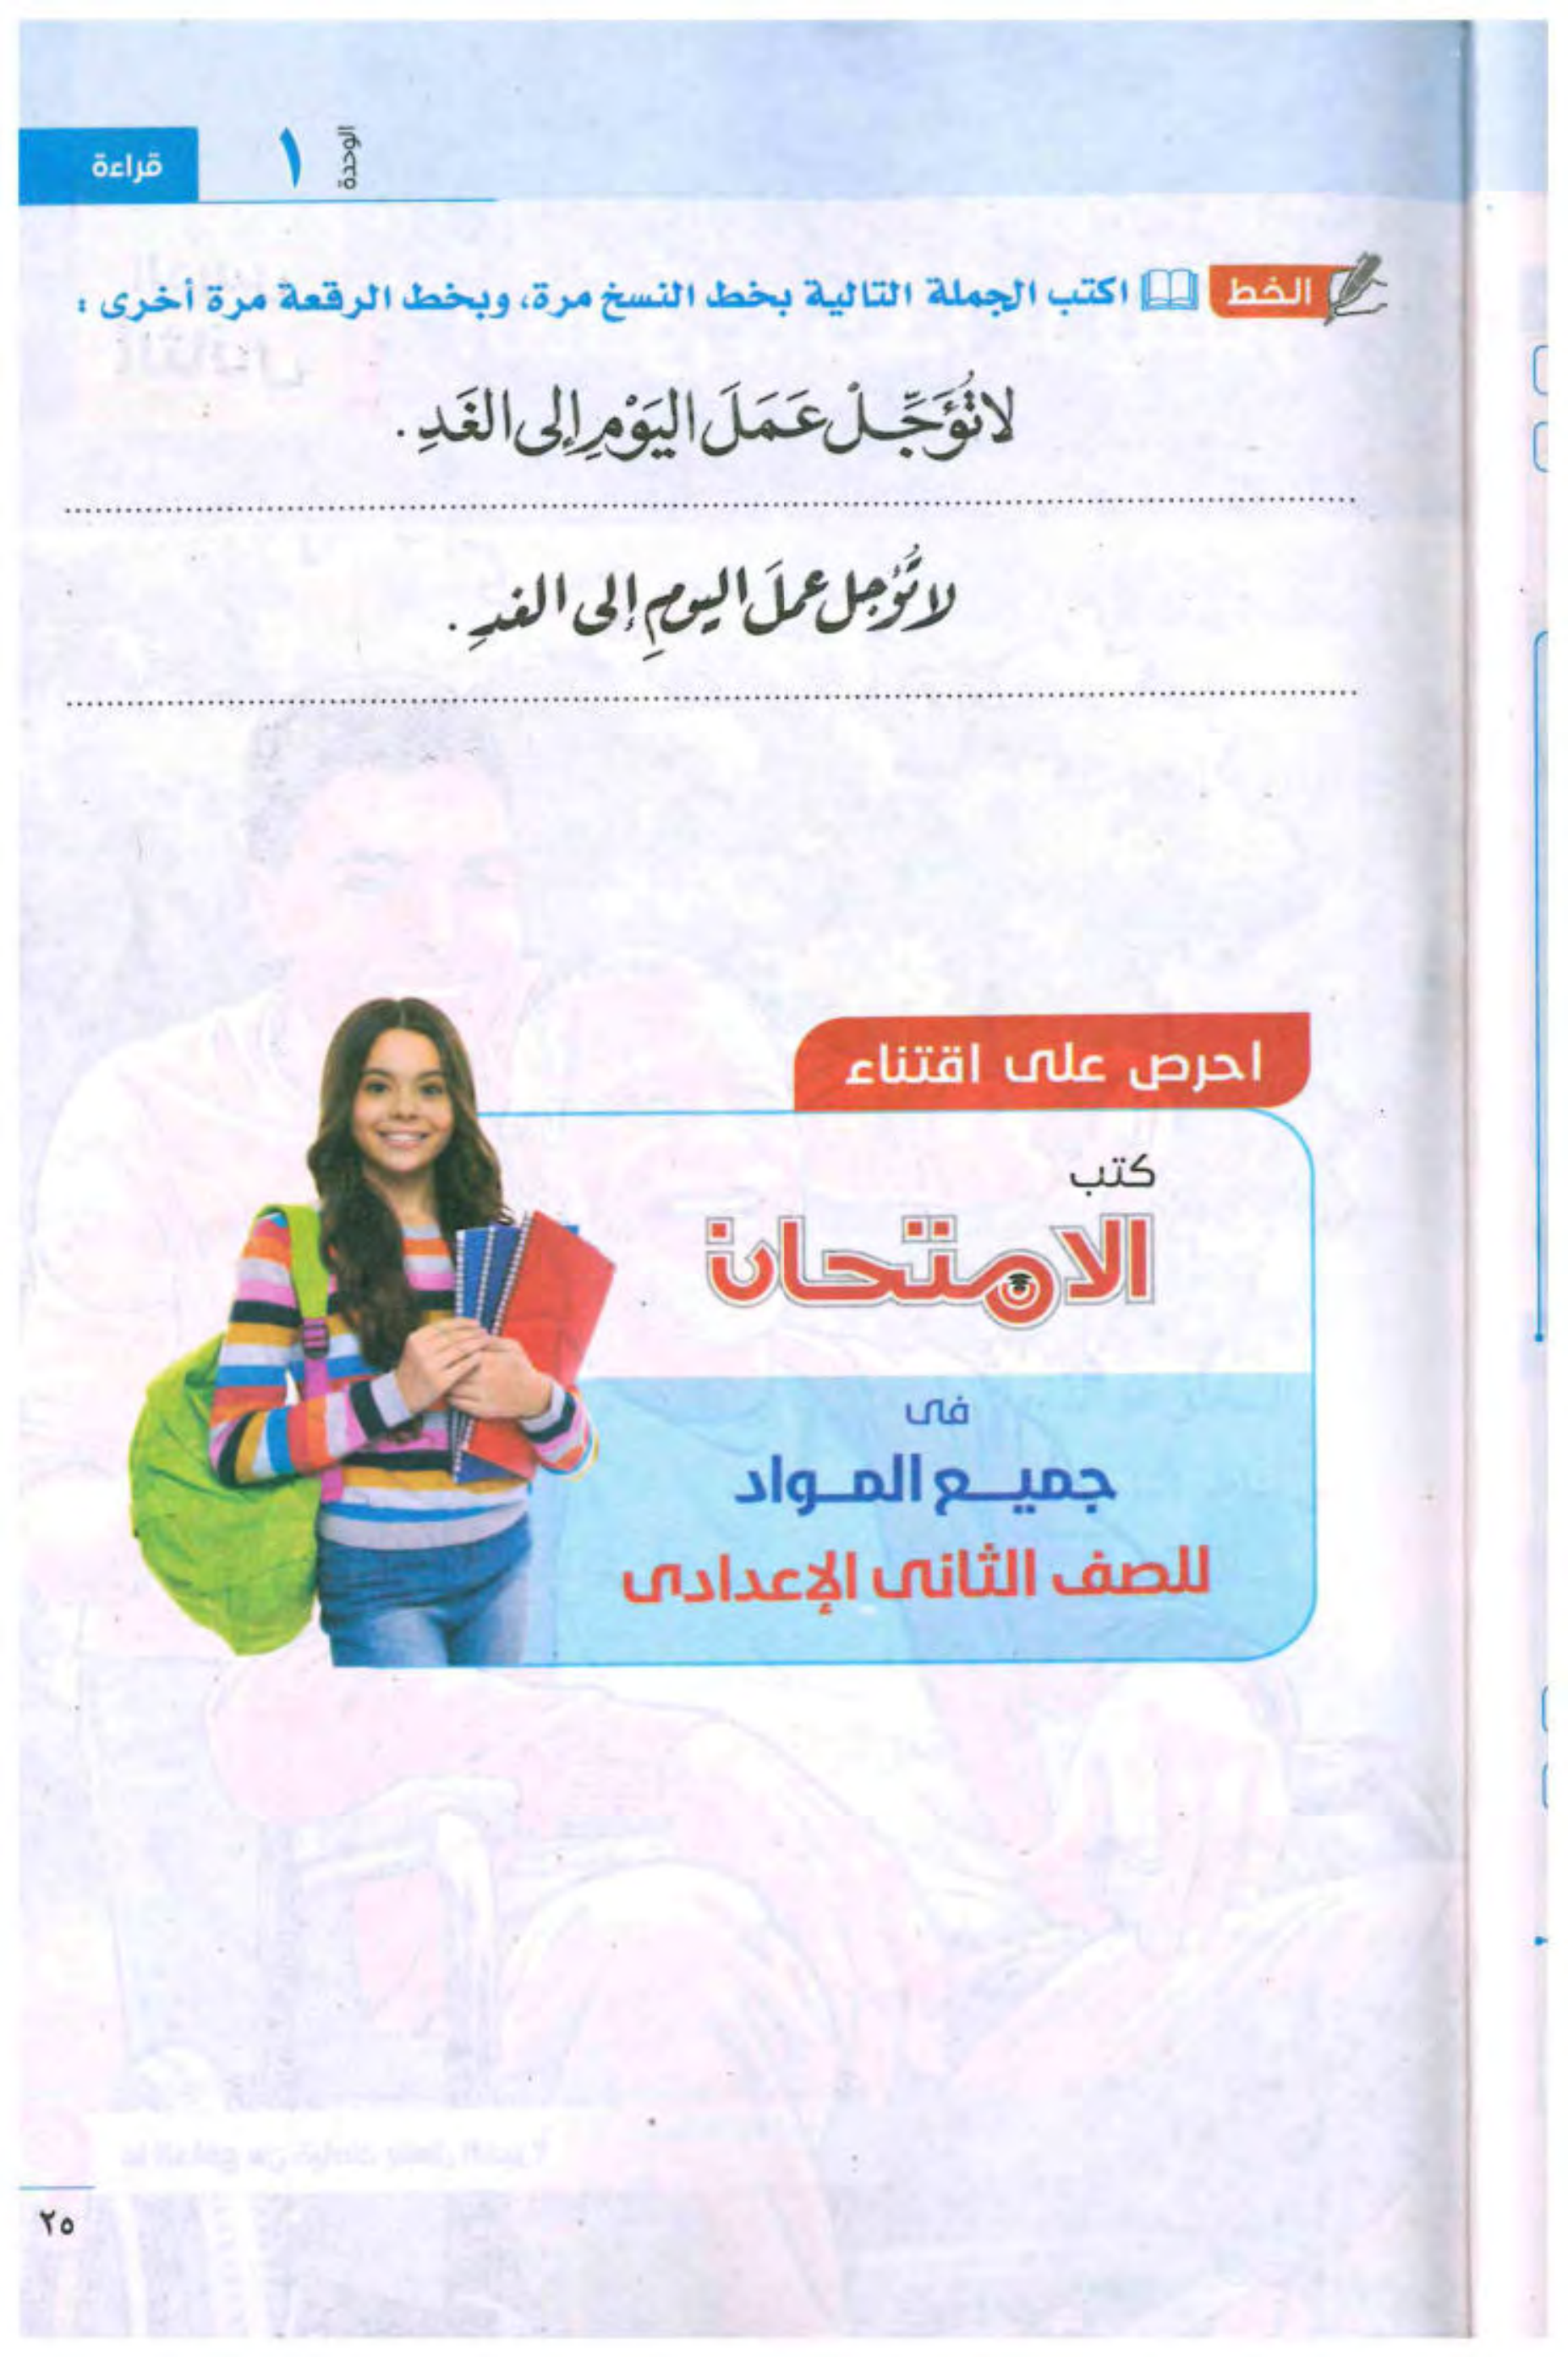 الوحدة ١ قراءة
الخط اكتب الجملة التالية بخط النسخ مرة، وبخط الرقعة مرة أخرى :
لا تُؤَجِّلْ عَمَلَ اليَوْمِ إلى الغَدِ .
لا تُؤجل عملَ اليومِ إلى الغدِ .
احرص على اقتناء
كتب
الامتحان
فى
جميع المواد
للصف الثانى الإعدادى
٢٥